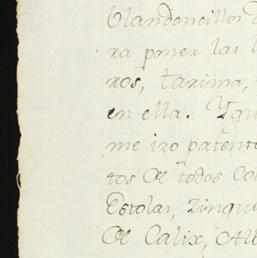 Blandoncillos
ra poner las
ros, tarima,
en ella. Ygu
me izo patent
tos de todos Co
Estolas, Zingu
de Calix, Al